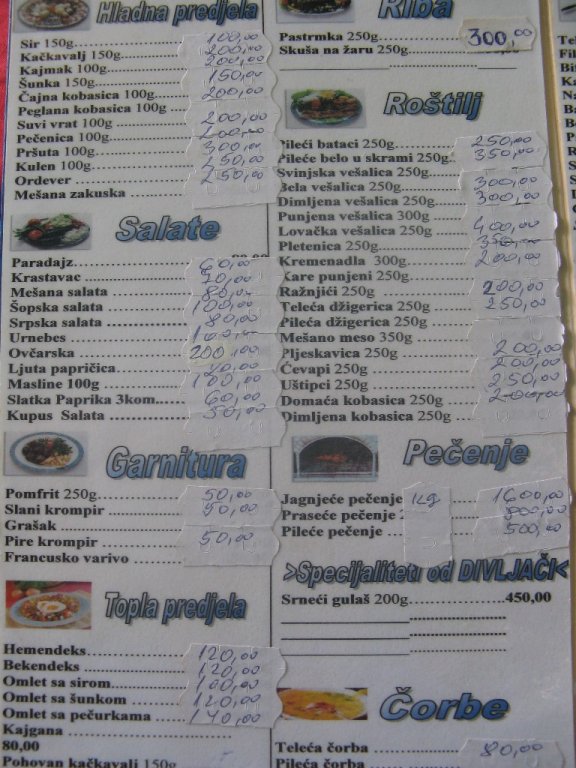 Hladna predjela
Sir 150g 100,00
Kačkavalj 150g 200,00
Kajmak 100g 200,00
Šunka 150g 150,00
Čajna kobasica 100g 200,00
Peglana kobasica 100g
Suvi vrat 100g 200,00
Pečenica 100g 200,00
Pršuta 100g 300,00
Kulen 100g 250,00
Ordever 250,00
Mešana zakuska
Salate
Paradajz 60,00
Krastavac 70,00
Mešana salata 80,00
Šopska salata 100,00
Srpska salata 80,00
Urnebes 100,00
Ovčarska 200,00
Ljuta papričica 40,00
Masline 100g 100,00
Slatka Paprika 3kom 60,00
Kupus Salata 50,00
Garnitura
Pomfrit 250g 50,00
Slani krompir 50,00
Grašak
Pire krompir 50,00
Francusko varivo
Topla predjela
Hemendeks 120,00
Bekendeks 120,00
Omlet sa sirom 100,00
Omlet sa šunkom 120,00
Omlet sa pečurkama 140,00
Kajgana
80,00
Pohovan kačkavalj 150g
Riba
Pastrmka 250g 300,00
Skuša na žaru 250g
Roštilj
Pileći bataci 250g 250,00
Pileće belo u skrami 250g 350,00
Svinjska vešalica 250g
Bela vešalica 250g 300,00
Dimljena vešalica 250g 300,00
Punjena vešalica 300g
Lovačka vešalica 250g 400,00
Pletenica 250g 350,00
Kremenadla 300g 200,00
Kare punjeni 250g
Ražnjići 250g 200,00
Teleća džigerica 250g 250,00
Pileća džigerica 250g
Mešano meso 350g
Pljeskavica 250g 200,00
Ćevapi 250g 200,00
Uštipci 250g 250,00
Domaća kobasica 250g 200,00
Dimljena kobasica 250g
Pečenje
Jagnjeće pečenje 1kg 1600,00
Praseće pečenje 900,00
Pileće pečenje 500,00
>Specijaliteti od DIVLJAČI<
Srneći gulaš 200g 450,00
Čorbe
Teleća čorba 80,00
Pileća čorba